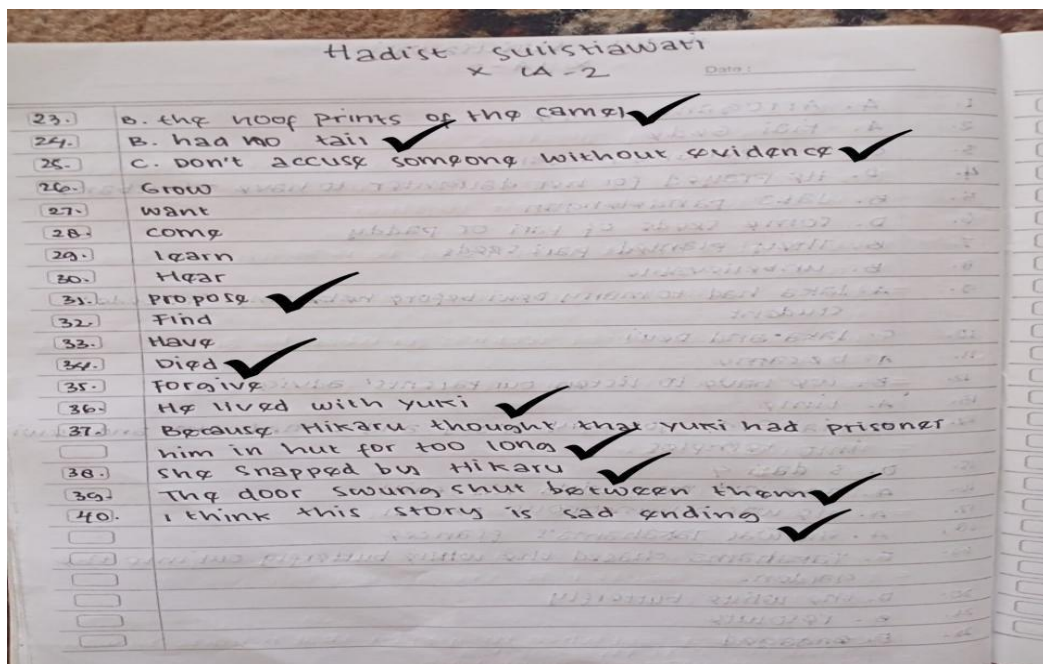 Hadist Sulistiawati
X IA-2
Date:
23. B. the hoof prints of the camel
24. B. had no tail
25. C. Don't accuse someone without evidence
26. Grow
27. Want
28. Come
29. learn
30. Hear
31. Propose
32. Find
33. Have
34. Died
35. Forgive
36. He lived with Yuki
37. Because Hikaru thought that Yuki had prisoner
him in hut for too long
38. She snapped by Hikaru
39. The door swung shut between them
40. I think this story is sad ending